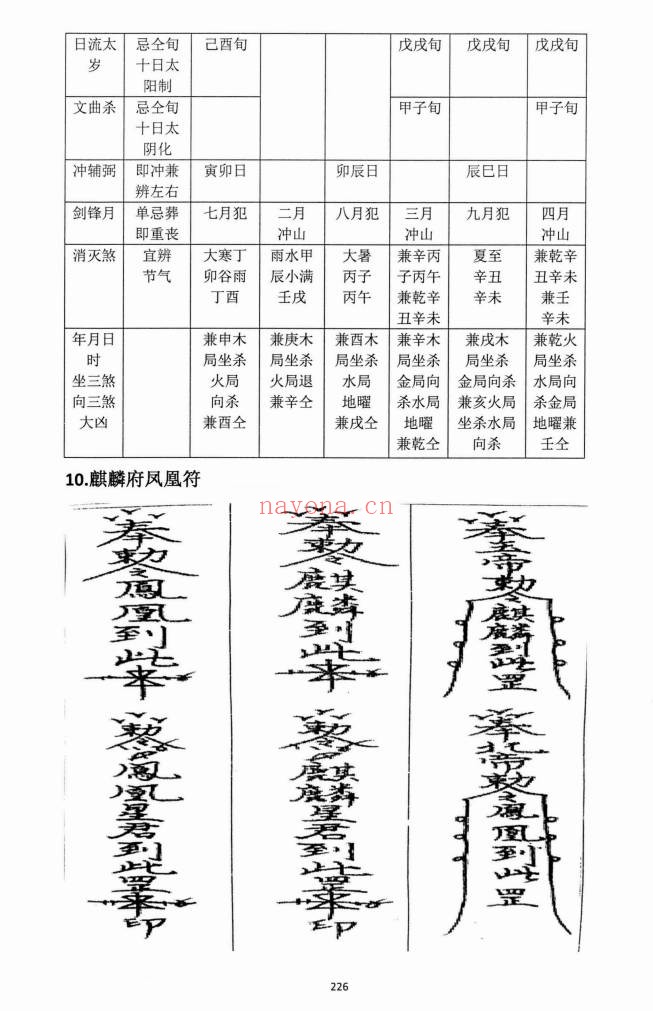 日流太 忌仝旬 己酉旬 戊戌旬 戊戌旬 戊戌旬
岁 十日太
阳制
文曲杀 忌仝旬 甲子旬 甲子旬
十日太
阴化
冲辅弼 即冲兼 寅卯日 卯辰日 辰巳日
辨左右
剑锋月 单忌葬 七月犯 二月 八月犯 三月 九月犯 四月
即重丧 冲山 冲山 冲山
消灭煞 宜辨 大寒丁 雨水甲 大暑 兼辛丙 夏至 兼乾辛
节气 卯谷雨 辰小满 丙子 子丙午 辛丑 丑辛未
丁酉 壬戌 丙午 兼乾辛 辛未 兼壬
丑辛未 辛未
年月日 兼申木 兼庚木 兼酉木 兼辛木 兼戌木 兼乾火
时 局坐杀 局坐杀 局坐杀 局坐杀 局坐杀 局坐杀
坐三煞 火局 火局退 水局 金局向 金局向杀 水局向
向三煞 向杀 兼辛仝 地曜 杀水局 兼亥火局 杀金局
大凶 兼酉仝 兼戌仝 地曜 坐杀水局 地曜兼
兼乾仝 向杀 壬仝
10.麒麟府凤凰符
nayona.cn
奉勅令鳳凰到此
奉勅令麒麟到此
奉玉帝勅令麒麟到此罡
勅令鳳凰星君到此罡印
勅令麒麟星君到此罡印
奉北帝勅令鳳凰到此罡
226